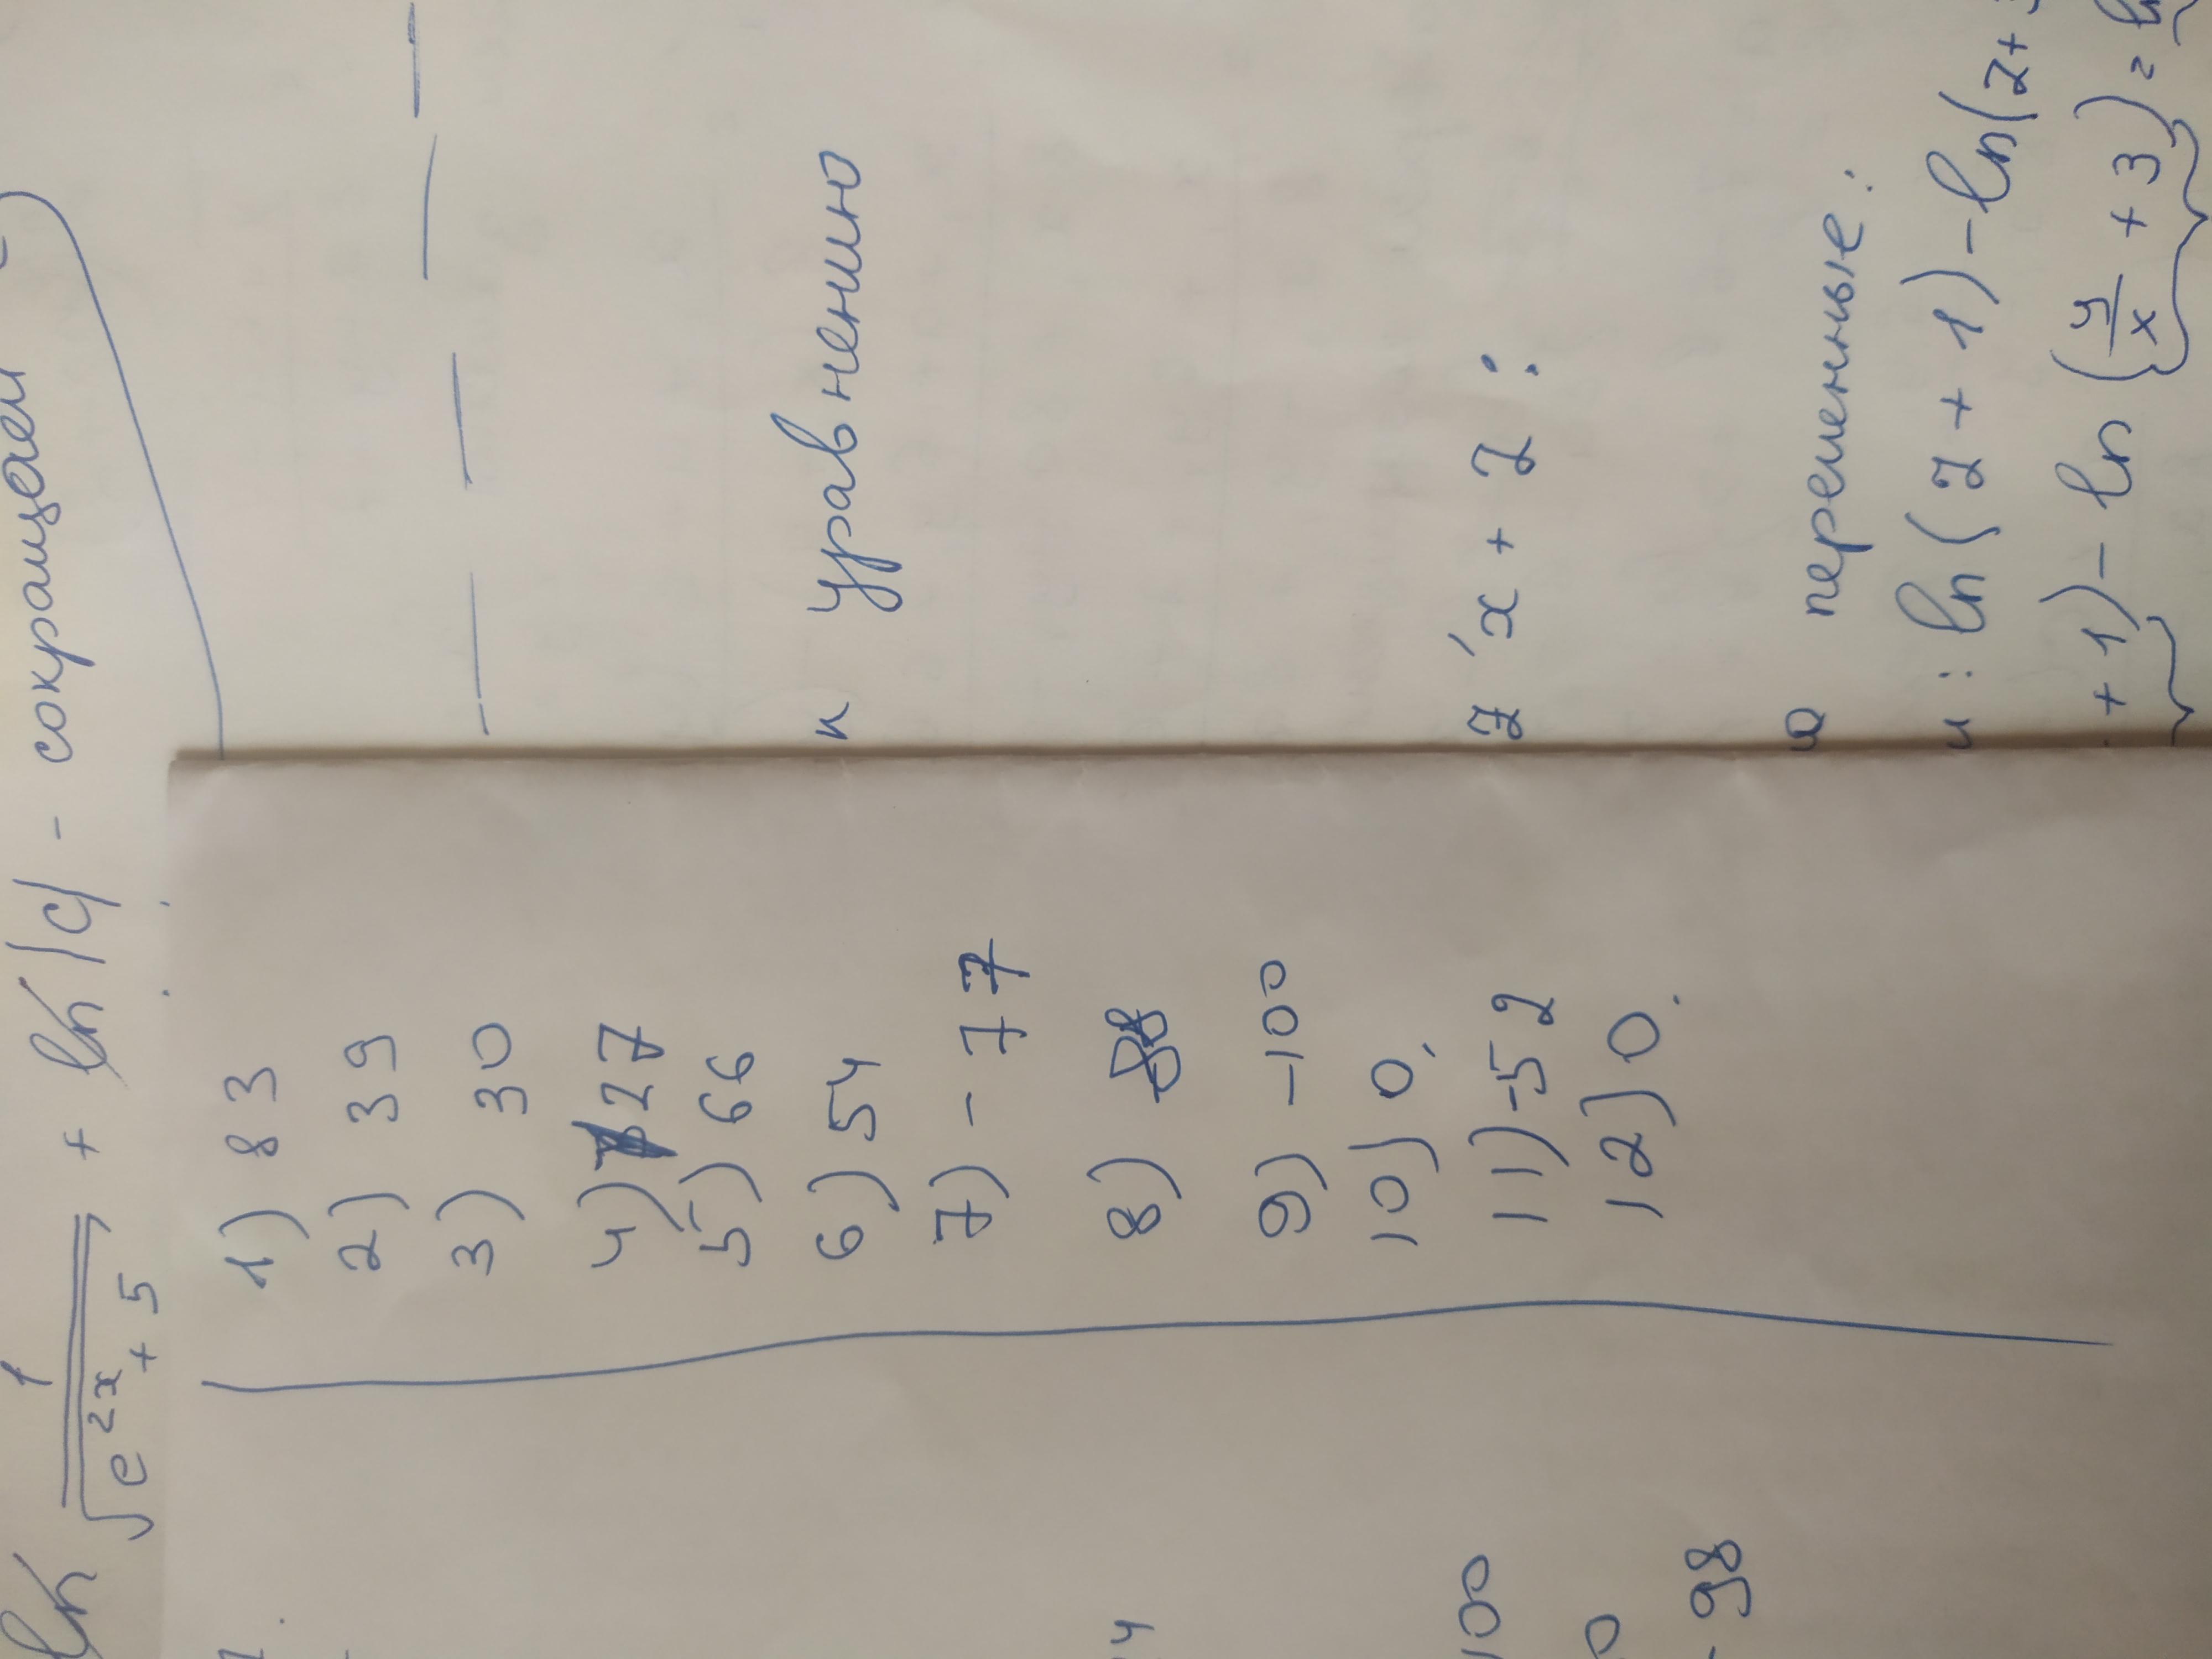 ln 1/√(e^2x + 5) + ln|c| - сокращаем
1) 83
2) 39
3) 30
4) 27
5) 66
6) 54
7) - 77
8) 38
9) -100
10) 0,
11) -52
12) 0.
100
0
- 98
к уравнению
z'x + z :
переменные:
: ln(z + 1) - ln(z+3
+ 1) - ln(y/x + 3) =